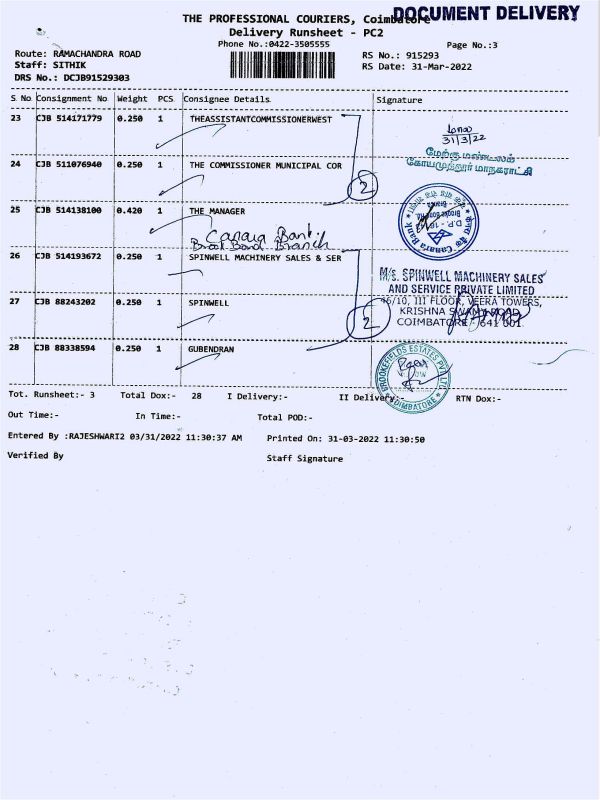 DOCUMENT DELIVERY
THE PROFESSIONAL COURIERS, Coimbatore
Delivery Runsheet - PC2
Phone No.:0422-3505555
Page No.:3
Route: RAMACHANDRA ROAD
RS No.: 915293
Staff: SITHIK
RS Date: 31-Mar-2022
DRS No.: DCJB91529303
S No Consignment No Weight PCS Consignee Details Signature
23 CJB 514171779 0.250 1 THEASSISTANTCOMMISSIONERWEST
31/3/22
மேற்கு மண்டலம்
கோயமுத்தூர் மாநகராட்சி
24 CJB 511076940 0.250 1 THE COMMISSIONER MUNICIPAL COR
2
25 CJB 514138100 0.420 1 THE MANAGER
Canara Bank
Branch
Canara Bank
26 CJB 514193672 0.250 1 SPINWELL MACHINERY SALES & SER
M/s. SPINWELL MACHINERY SALES
AND SERVICE PRIVATE LIMITED
46/10, III FLOOR, VEERA TOWERS,
KRISHNA SWAMY ROAD,
COIMBATORE - 641 001.
27 CJB 88243202 0.250 1 SPINWELL
2
28 CJB 88338594 0.250 1 GUBENDRAN
BROOKEFIELDS ESTATES PVT LTD
COIMBATORE
Tot. Runsheet:- 3 Total Dox:- 28 I Delivery:- II Delivery:- RTN Dox:-
Out Time:- In Time:- Total POD:-
Entered By :RAJESHWARI2 03/31/2022 11:30:37 AM Printed On: 31-03-2022 11:30:50
Verified By Staff Signature